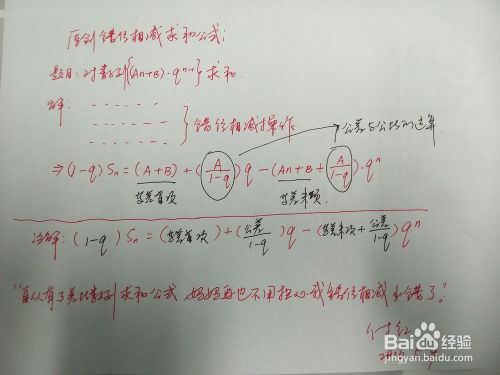 原创错位相减求和公式:
题目:对数列{(An+B)·qⁿ⁻¹}求和.
解: ......
......
...... } 错位相减操作
公差与公比的运算
⇒(1-q) Sn = (A+B) + (A/(1-q)) q - (An+B + A/(1-q))·qⁿ
等差首项 等差末项.
注解: (1-q) Sn = (等差首项) + (公差/(1-q)) q - (等差末项 + 公差/(1-q)) qⁿ
"自从有了差比数列求和公式 妈妈再也不用担心我错位相减出错了。"
Baidu经验
jingyan.baidu.com